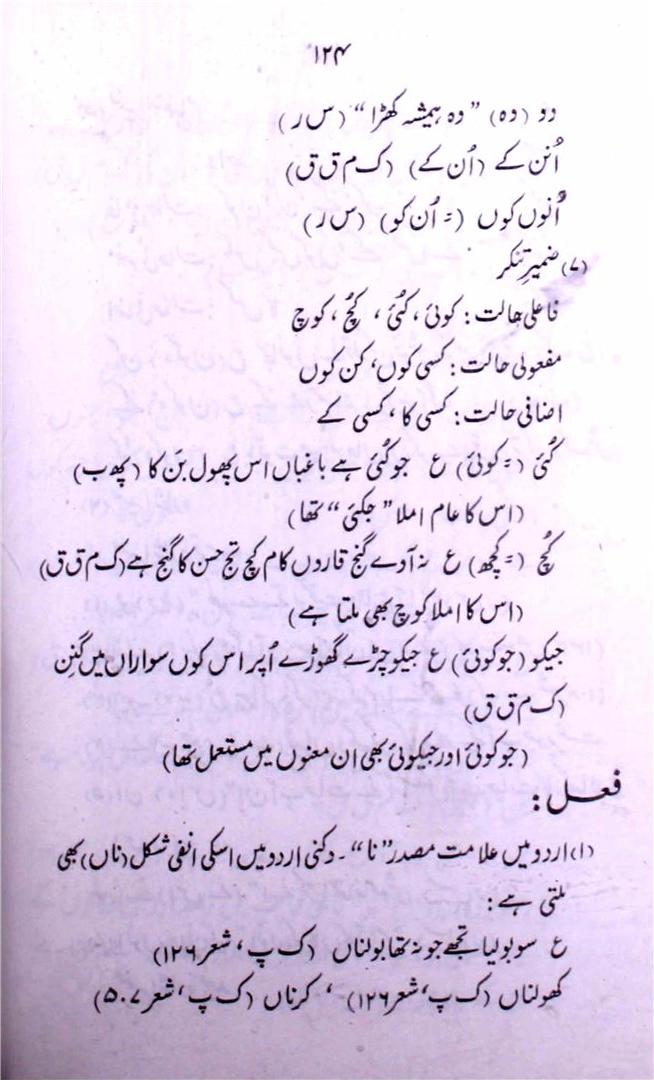 ۱۲۴
دو (وہ) "وہ ہمیشہ کھڑا" (س ر)
اُنن کے (اُن کے) (ک م ق ق)
اُنوں کوں (= اُن کو) (س ر)
(۷) ضمیرِ تنکر
فاعلی حالت: کوئی، کُئی، کُچ، کوچ
مفعولی حالت: کسی کوں، کن کوں
اضافی حالت: کسی کا، کسی کے
کُئی (= کوئی) ع جو کُئی ہے باغباں اس پھول بَن کا (پھ ب)
(اس کا عام املا "جکئی" تھا)
کُچ (= کچھ) ع نہ آدے گنج قاروں کام کچ تج حسن کا گنج ہے (ک م ق ق)
(اس کا املا کوچ بھی ملتا ہے)
جیکو (جو کوئی) ع جیکو چڑے گھوڑے اُپر اس کوں سواراں میں گنِن
(ک م ق ق)
(جو کوئی اور جیکوئی بھی ان معنوں میں مستعمل تھا)
فعل:
(۱) اردو میں علامت مصدر "نا"۔ دکنی اردو میں اسکی انفی شکل (ناں) بھی
ملتی ہے:
ع سو بولیا تجھے جو نہ تھا بولناں (ک پ، شعر ۱۲۶)
کھولناں (ک پ، شعر ۱۲۶)، کرناں (ک پ، شعر ۵۰۷)